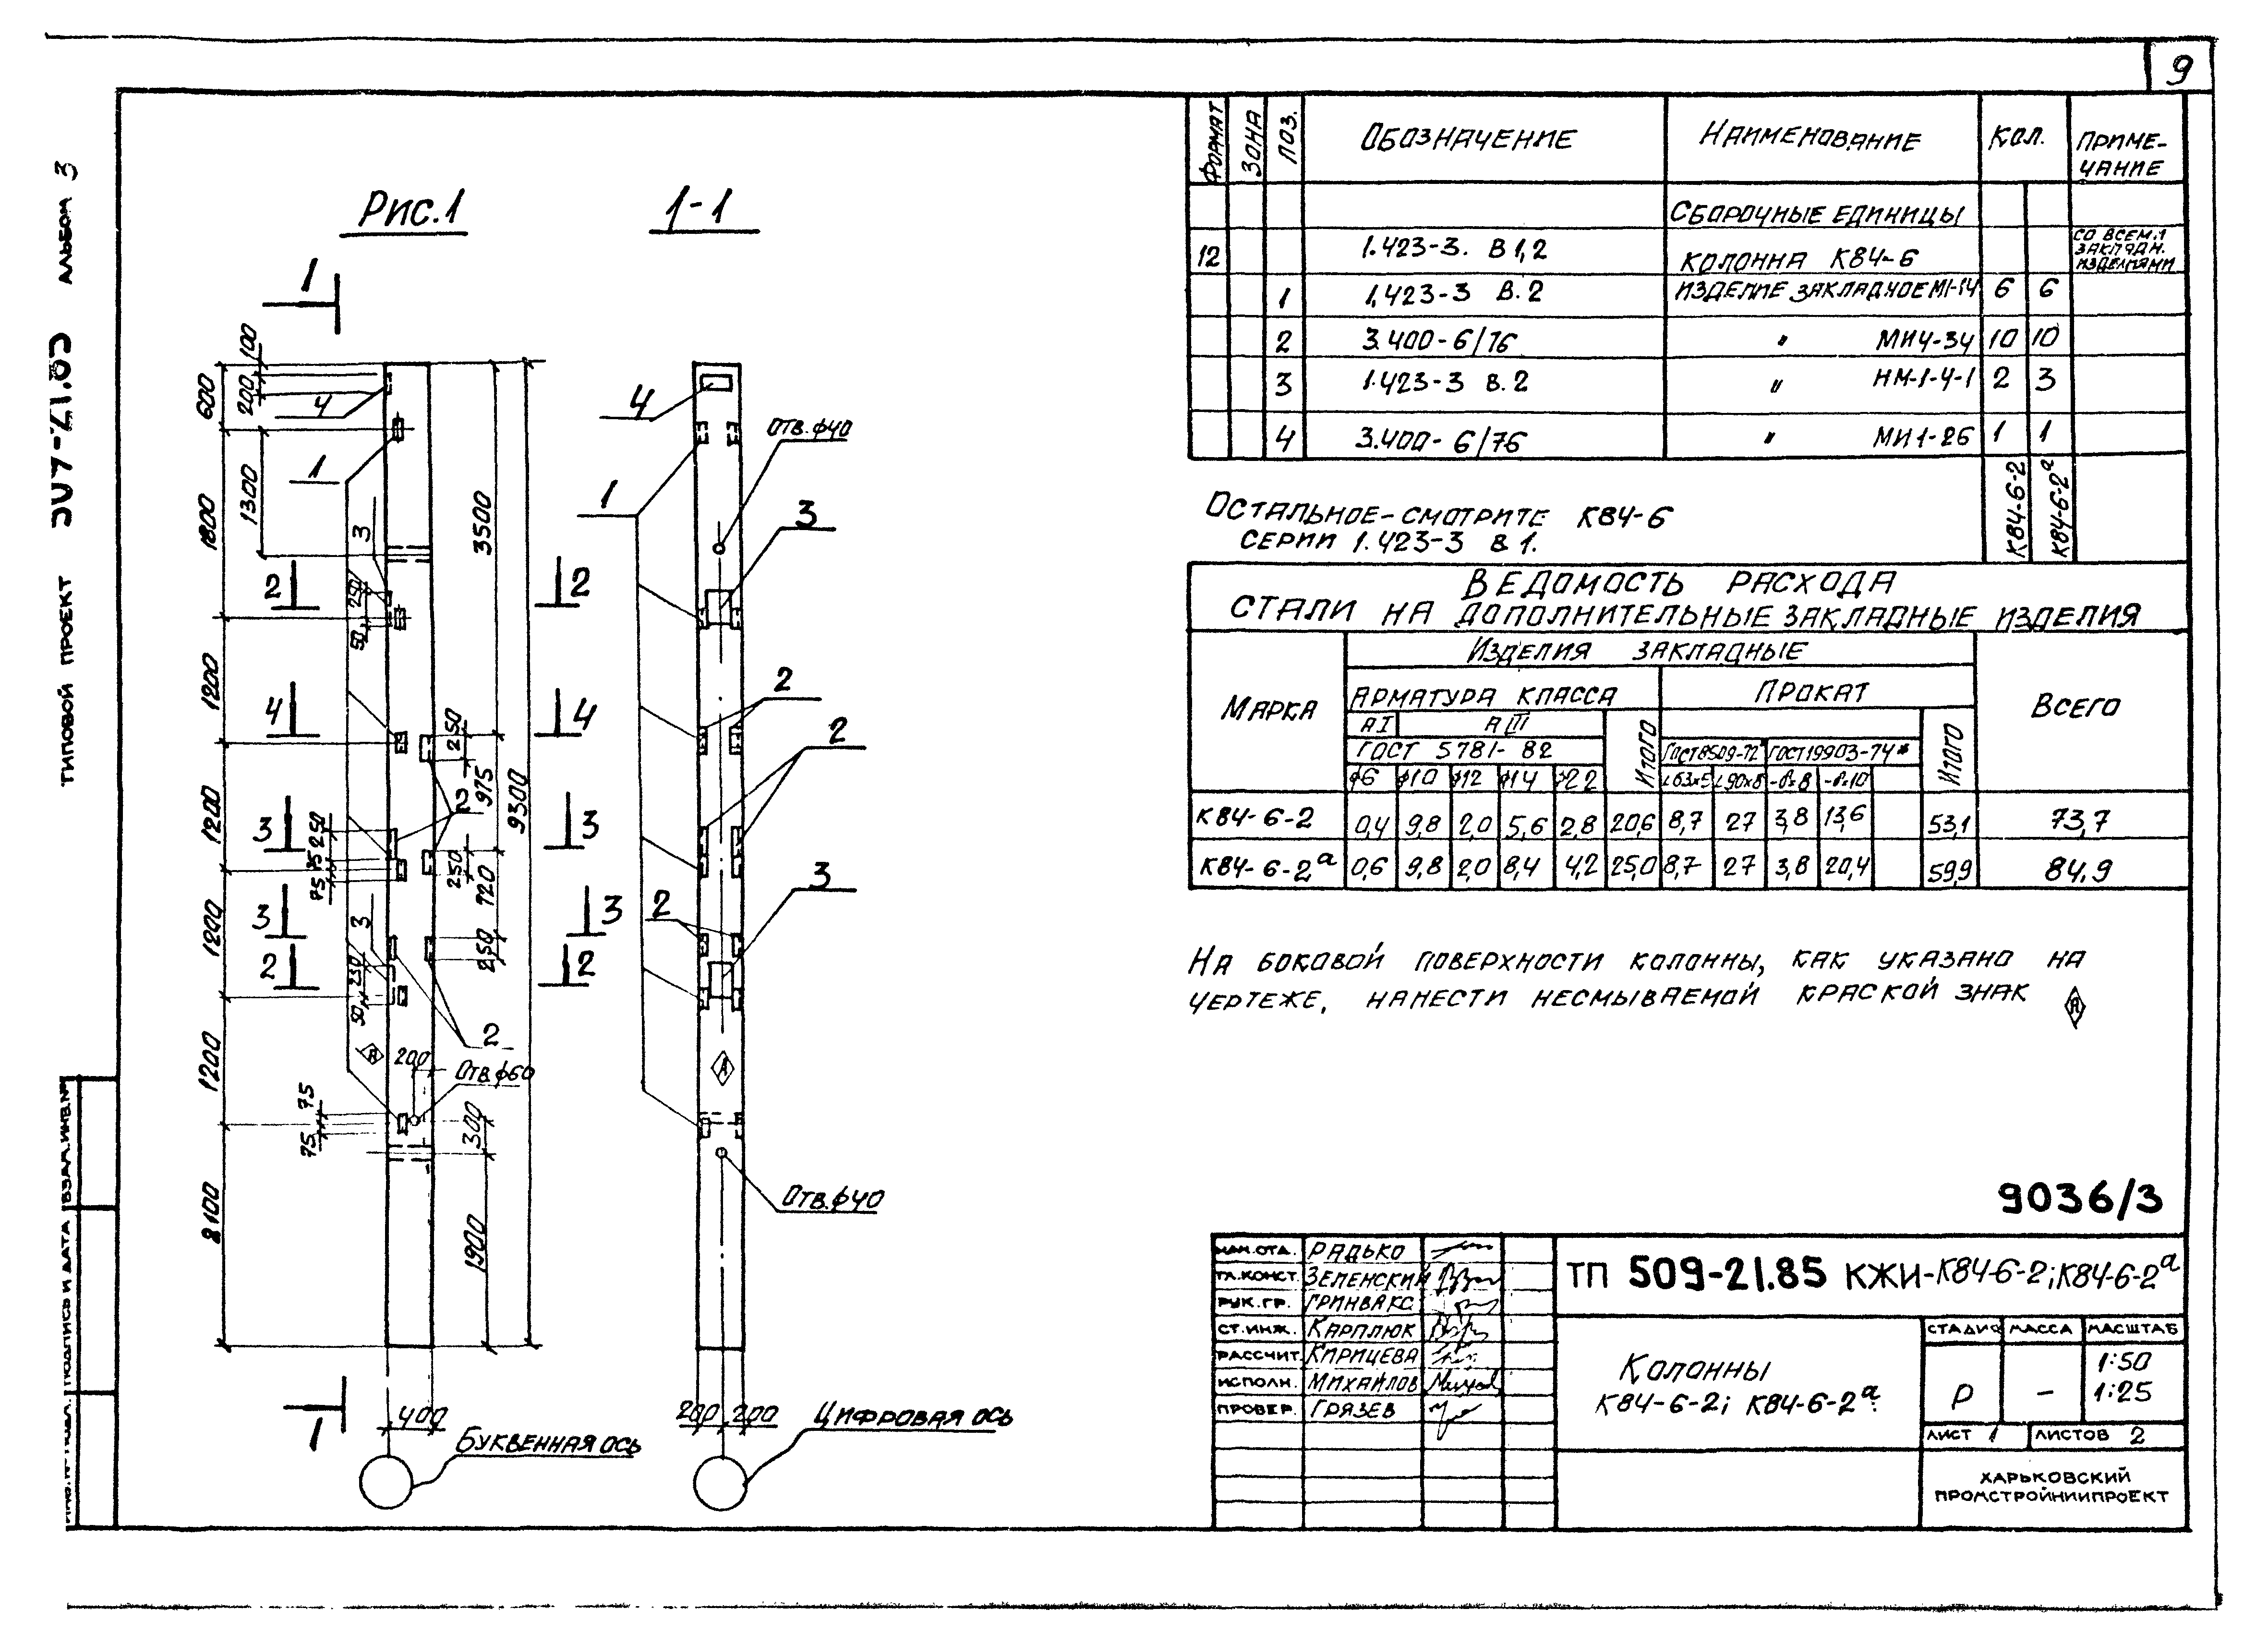 9
Альбом 3
Типовой проект
Рис.1
1-1
1
1
100
600
200
4
1
1300
1800
3
3500
2
2
50
1200
4
4
250
975
9300
2
1200
3
3
250
75
75
250
720
1200
3
3
3
250
2
2
230
50
2
1200
200
Отв.ф60
75
75
300
1900
400
Буквенная ось
4
Отв.ф40
1
3
2
2
3
2
Отв.ф40
200 200
Цифровая ось
Формат Зона Поз. Обозначение Наименование Кол. Примечание
Сборочные единицы
12 1.423-3. В1,2 Колонна К84-6 со всеми закладн. изделиями
1 1.423-3 В.2 Изделие закладное М1-14 6 6
2 3.400-6/76 " МИ4-34 10 10
3 1.423-3 В.2 " НМ-1-4-1 2 3
4 3.400-6/76 " МИ1-26 1 1
К84-6-2 К84-6-2ª
Остальное-смотрите К84-6
серии 1.423-3 В1.
Ведомость расхода
стали на дополнительные закладные изделия
Марка Изделия закладные Всего
Арматура класса Прокат
АI АIII Итого Итого
ГОСТ 5781-82 ГОСТ8509-72* ГОСТ19903-74*
ф6 ф10 ф12 ф14 ф22 L63х5 L90х8 -δ=8 -δ=10
К84-6-2 0,4 9,8 2,0 5,6 2,8 20,6 8,7 27 3,8 13,6 53,1 73,7
К84-6-2ª 0,6 9,8 2,0 8,4 4,2 25,0 8,7 27 3,8 20,4 59,9 84,9
На боковой поверхности колонны, как указано на
чертеже, нанести несмываемой краской знак
9036/3
Нач.отд. Радько
Гл.конст. Зеленский
Рук.гр. Гринвакс
Ст.инж. Карплюк
Рассчит. Кирицева
Исполн. Михайлов
Провер. Грязев
ТП 509-21.85 КЖИ-К84-6-2; К84-6-2ª
Колонны
К84-6-2; К84-6-2ª
Стадия Масса Масштаб
Р - 1:50
1:25
Лист 1 Листов 2
Харьковский
Промстройниипроект
Подпись и дата
Взам.инв.№